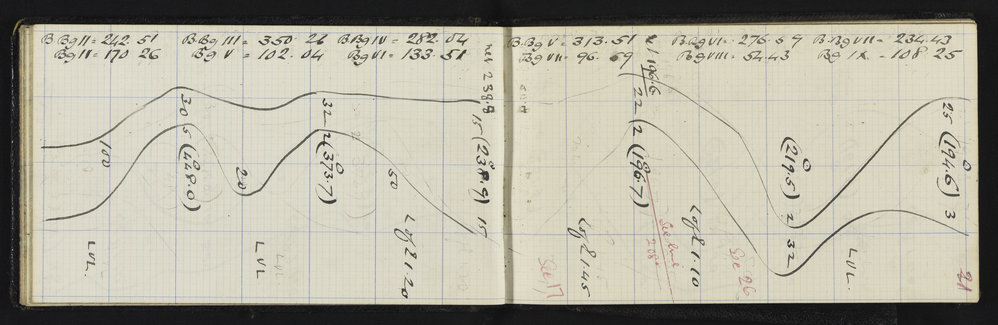 B.Bg II = 242.51 B.Bg III = 350.26 B.Bg IV = 282.04
Bg IV = 170.26 Bg V = 102.04 Bg VI = 133.51
B.Bg V = 313.51 B.Bg VI = 276.59 B.Bg VII = 234.43
Bg VII = 96.59 Bg VIII = 54.43 Bg IX = 108.25
238.9
100
30
5 (428.0)
20
32
2 (373.7)
50
15 (238.9) 15
LVL.
LVL
LVL
Log 21.20
196.6
22 (2 (196.7)
(219.5) 2) 32
25 (194.6) 3
Log 21.45
Log 21.10
LVL.
See 17
See line
208
See 26
21